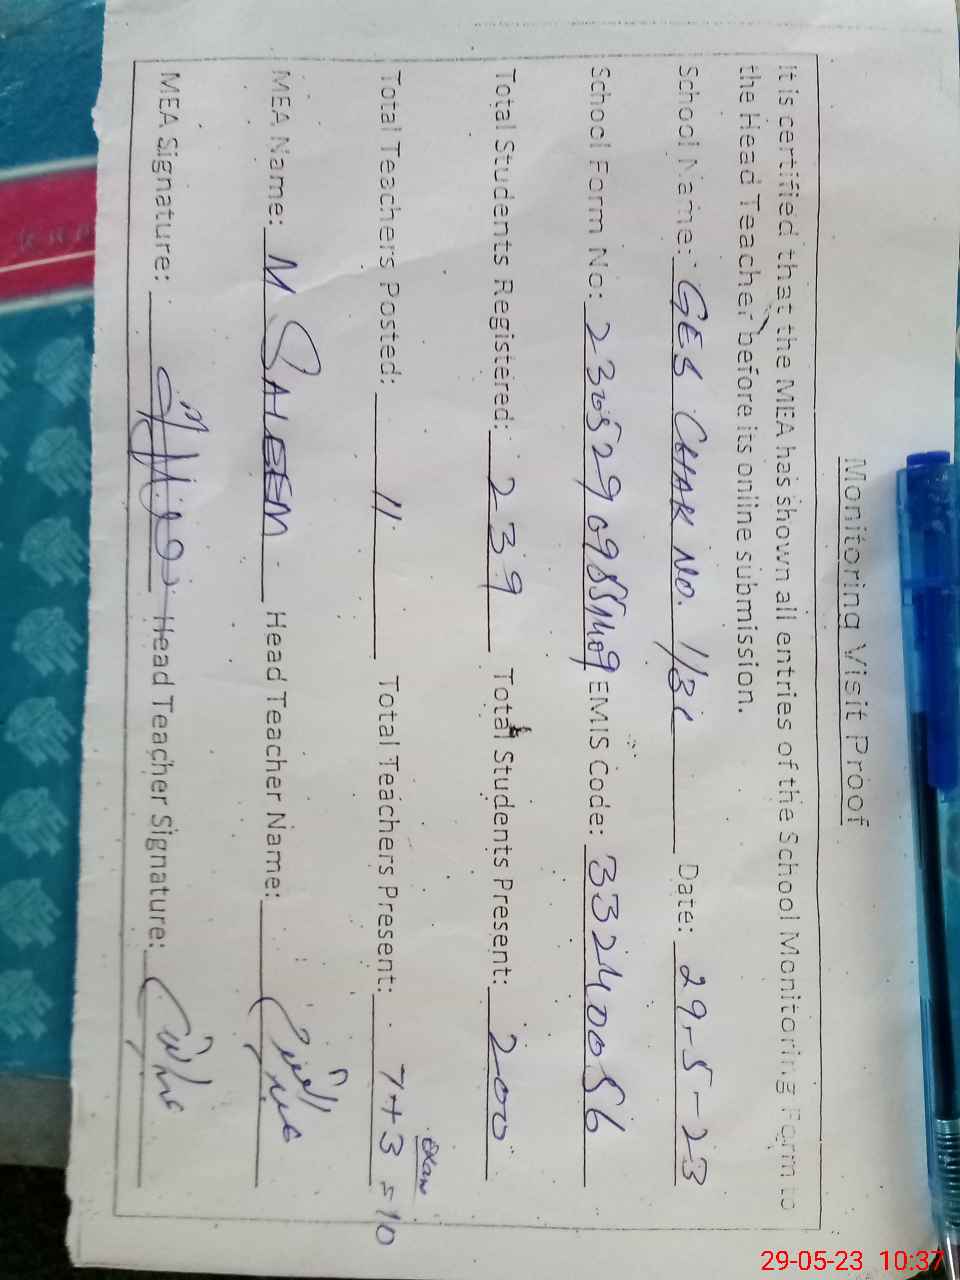 Monitoring Visit Proof
It is certified that the MEA has shown all entries of the School Monitoring Form to
the Head Teacher before its online submission.
School Name: GES CHAK NO. 1/3L Date: 29-5-23
School Form No: EMIS Code: 33240056
Total Students Registered: 239 Total Students Present: 200
Total Teachers Posted: 11 Total Teachers Present: 7+3 Exam =10
MEA Name: M SALEEM Head Teacher Name:
MEA Signature: Head Teacher Signature:
29-05-23 10:37